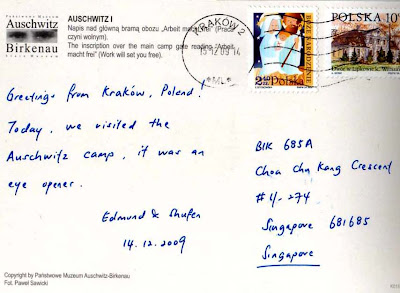 Auschwitz
Birkenau
AUSCHWITZ I
Napis nad główną bramą obozu „Arbeit macht frei" (Praca
czyni wolnym).
The inscription over the main camp gate reading "Arbeit
macht frei" (Work will set you free).
KRAKÓW 2
15.12.09.14
*ML*
2,40 zł Polska
POLSKA 10
Greetings from Kraków, Poland!
Today, we visited the
Auschwitz camp, it was an
eye opener.
Edmund & Shufen
14.12.2009
Blk 685A
Choa Chu Kang Crescent
#4-274
Singapore 681685
Singapore
Copyright by Państwowe Muzeum Auschwitz-Birkenau
Fot. Paweł Sawicki